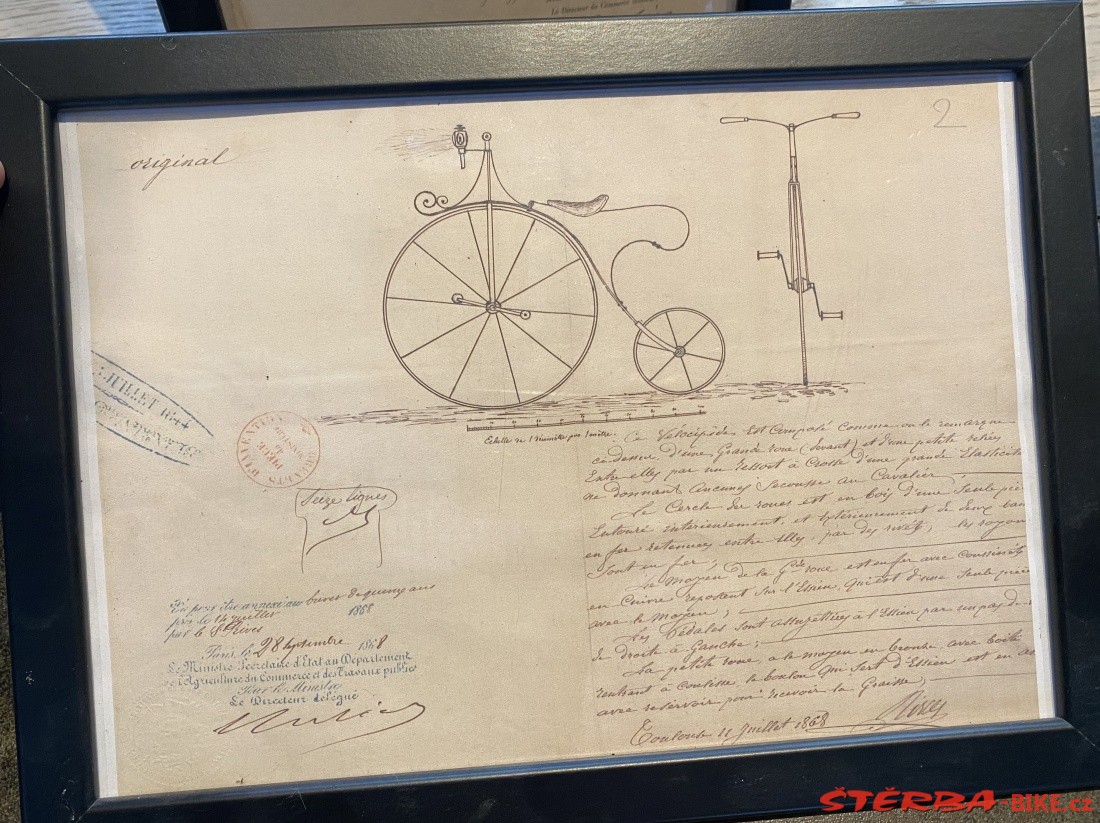 Le Directeur du Commerce
2
original
JUILLET 1844
Echelle de 1 décimètre pour 1 mètre.
Ce Vélocipède est composé comme on le remarque
ci-dessus d'une Grande roue (devant) et d'une petite reliées
Entre elles par un ressort à Crosse d'une grande Elasticité
ne donnant aucunes Secousse au Cavalier;
Le Cercle des roues est en bois d'une Seule piè
Entouré intérieurement, et Extérieurement de deux ban
en fer retenues entre elles, par des rivets, les rayon
Sont en fer;
Le moyeu de la Gde roue est en fer avec Coussinets
en Cuivre reposent sur l'Essieu, qui est d'une Seule pièce
avec le moyeu;
Les Pédales sont assujetties à l'Essieu par un pas de
de droite à Gauche;
La petite roue, a le moyeu en bronze, avec boîte
rentrant à coulisse, le boulon qui Sert d'Essieu est en ac
avec réservoir pour recevoir la Graisse;
Toulouse 11 Juillet 1868 Rives
Seize lignes
Vu pour être annexé au brevet de quinze ans
pris le 14 juillet 1868
par le Sr Rives
Paris le 28 Septembre 1868
Le Ministre Secrétaire d'État au Département
de l'Agriculture du Commerce et des Travaux publics
Pour le Ministre
Le Directeur délégué
ŠTĚRBA-BIKE.cz